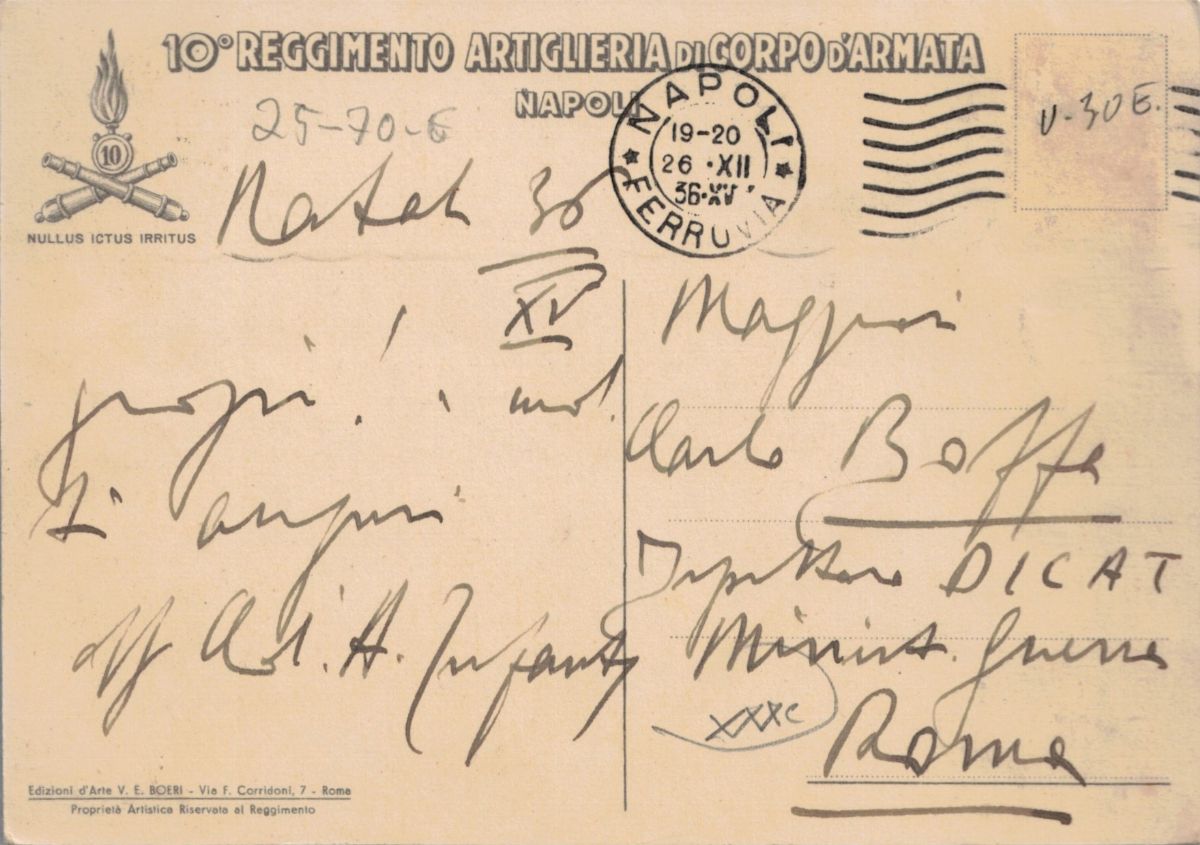 10° REGGIMENTO ARTIGLIERIA DI CORPO D'ARMATA
NAPOLI
10
NULLUS ICTUS IRRITUS
25-70-E
NAPOLI
19-20
26 · XII
36·XV
FERRUVIA
V-30E.
Natale 36
XV
grazie!
auguri
Maggiore
Carlo Boffa
DICAT
Minist. Guerra
Roma
XXXC
Edizioni d'Arte V. E. BOERI - Via F. Corridoni, 7 - Roma
Proprietà Artistica Riservata al Reggimento